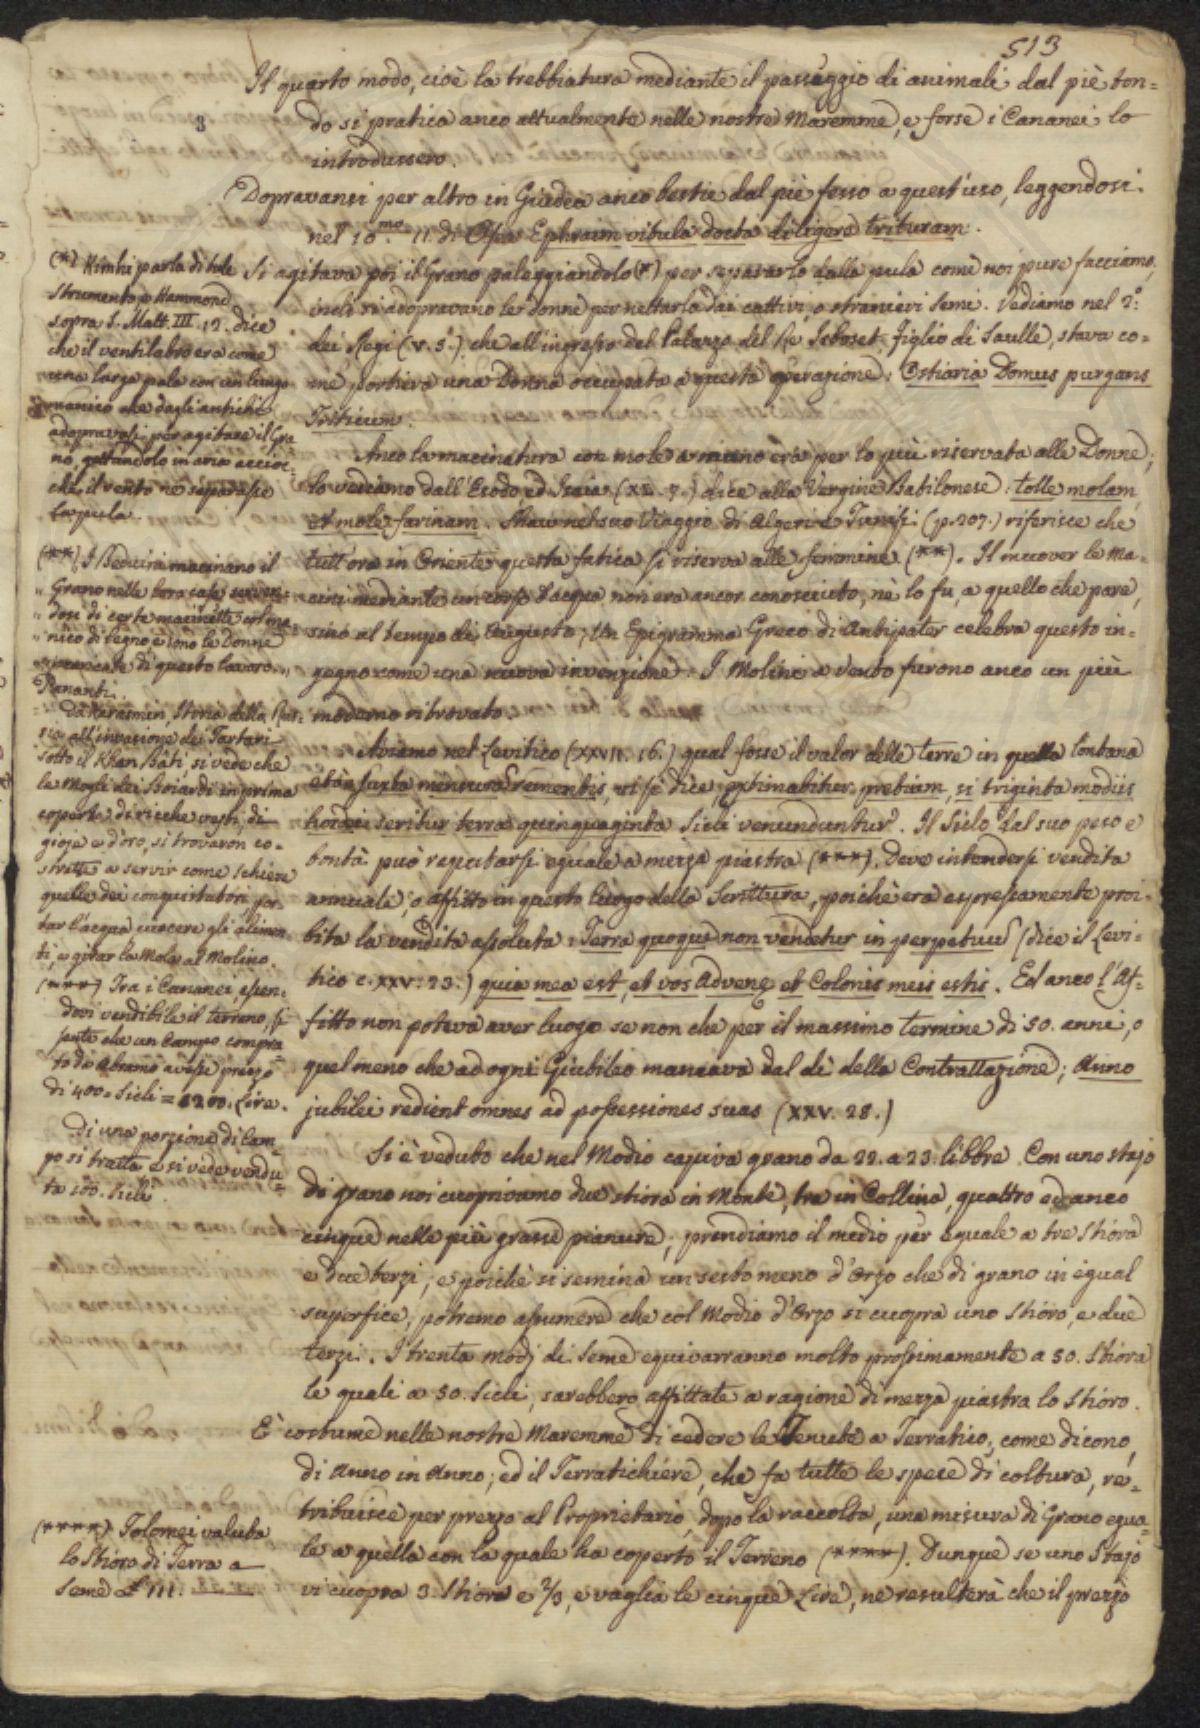 513
Il quarto modo, cioè la trebbiatura mediante il passaggio di animali dal piè ton=
do si pratica anco attualmente nelle nostre Maremme, e forse i Cananei lo
introdussero.
Dopravansi per altro in Giudea anco bestie dal piè fesso a quest'uso, leggendosi
nel 10.mo 11. di Osea Ephraim vitula docta diligere trituram.
Si agitava poi il Grano paleggiandolo (*) per separarlo dalla pula come noi pure facciamo,
indi si adopravano le donne per nettarlo dai cattivi, o stranieri semi. Vediamo nel 2.o
dei Regi (v. 5.) che all'ingresso del Palazzo del Re Isboset, figlio di Saulle, stava co=
me portiera una Donna occupata a questa operazione: Ostiaria Domus purgans
Triticum.
Anco la macinatura con mole a mano era per lo più riservata alle Donne;
lo vediamo dall'Esodo ed Isaia (XL. 7.) dice alla Vergine Babilonese: tolle molam,
et mole farinam. Shaw nel suo Viaggio di Algeri e Tunisi (p. 207.) riferisce che
tutt'ora in Oriente questa fatica si riserva alle femmine (**). Il muover le Ma=
cini mediante un corso d'acqua non era ancor conosciuto, nè lo fu, a quello che pare,
sino al tempo di Augusto; Un Epigramma Greco di Antipater celebra questo in=
gegno come una nuova invenzione. I Molini a Vento furono anco un più
moderno ritrovato.
Abiamo nel Levitico (XXVII. 16.) qual fosse il valor delle terre in quella lontana
età: Juxta mensuram sementis, vi si dice, extimabitur pretium, si triginta modiis
hordei seritur terra quinquaginta Sicli venundantur. Il Siclo dal suo peso e
bontà può reputarsi eguale a mezza piastra (***). Deve intendersi vendita
annuale, o affitto in questo luogo della Scrittura, poichè era espressamente proi=
bita la vendita assoluta: Terra quoque non vendetur in perpetuum (dice il Levi=
tico c. XXV. 23.) quia mea est, et vos Advenæ et Colonis meis estis. Ed anco l'Af=
fitto non poteva aver luogo se non che per il massimo termine di 50. anni, o
quel meno che ad ogni Giubileo mancava dal dì della Contrattazione; Anno
jubilei redient omnes ad possessiones suas (XXV. 28.)
Si è veduto che nel Modio capiva grano da 22. a 23. libbre. Con uno stajo
di grano noi cuopriamo due stiora in Monte, tre in Collina, quattro ed anco
cinque nelle più grasse pianure; prendiamo il medio per eguale a tre Stiora
e due terzi; e poichè si semina un sesto meno d'Orzo che di grano in egual
superfice, potremo assumere che col Modio d'Orzo si cuopra uno Stioro, e due
terzi. I trenta modj di Seme equivarranno molto prossimamente a 50. Stiora
le quali a 50. Sicli, sarebbero affittate a ragione di mezza piastra lo Stioro.
È costume nelle nostre Maremme di cedere le Tenute a Terratico, come dicono,
di Anno in Anno; ed il Terratichiere, che fa tutte le spese di coltura, re=
tribuisce per prezzo al Proprietario, dopo la raccolta, una misura di Grano egua=
le a quella con la quale ha coperto il Terreno (****). Dunque se uno Stajo
vi cuopra 3. Stiora e 2/3, e vaglia le cinque Lire, ne resulterà che il prezzo
(*) Kimhi parla di tale
Strumento, e Hammond
sopra S. Matt. III. 12. dice
che il ventilabro era come
una larga pala con un lungo
manico che dagli antichi
adopravasi per agitare il Gra=
no, gettandolo in aria accioc=
chè il vento ne separasse
la pula.
(**) I Beduini macinano il
" Grano nelle loro case serven=
" dosi di certe macinette col ma=
" nico di legno e sono le donne
" incaricate di questo lavoro "
Pananti.
Da Karamsin, Storia della Rus=
sia all'invasione dei Tartari
sotto il Khan Bati, si vede che
le Mogli dei Boiardi in prima
coperte di ricche vesti, di
gioje e d'oro, si trovaron co=
strette a servir come schiave
quelle dei conquistatori, por=
tar l'acqua, cuocere gli alimen=
ti, e girar la Mola al Molino.
(***) Tra i Cananei, essen=
dovi vendibile il terreno, si
sente che un Campo compra=
to da Abramo avesse prezzo
di 400. Sicli = 1200. Lire.
Di una porzione di Cam=
po si tratta e si vede vendu=
ta 100. Sicli.
(****) Tolomei valuta
lo Stioro di Terra a
Seme £ III.